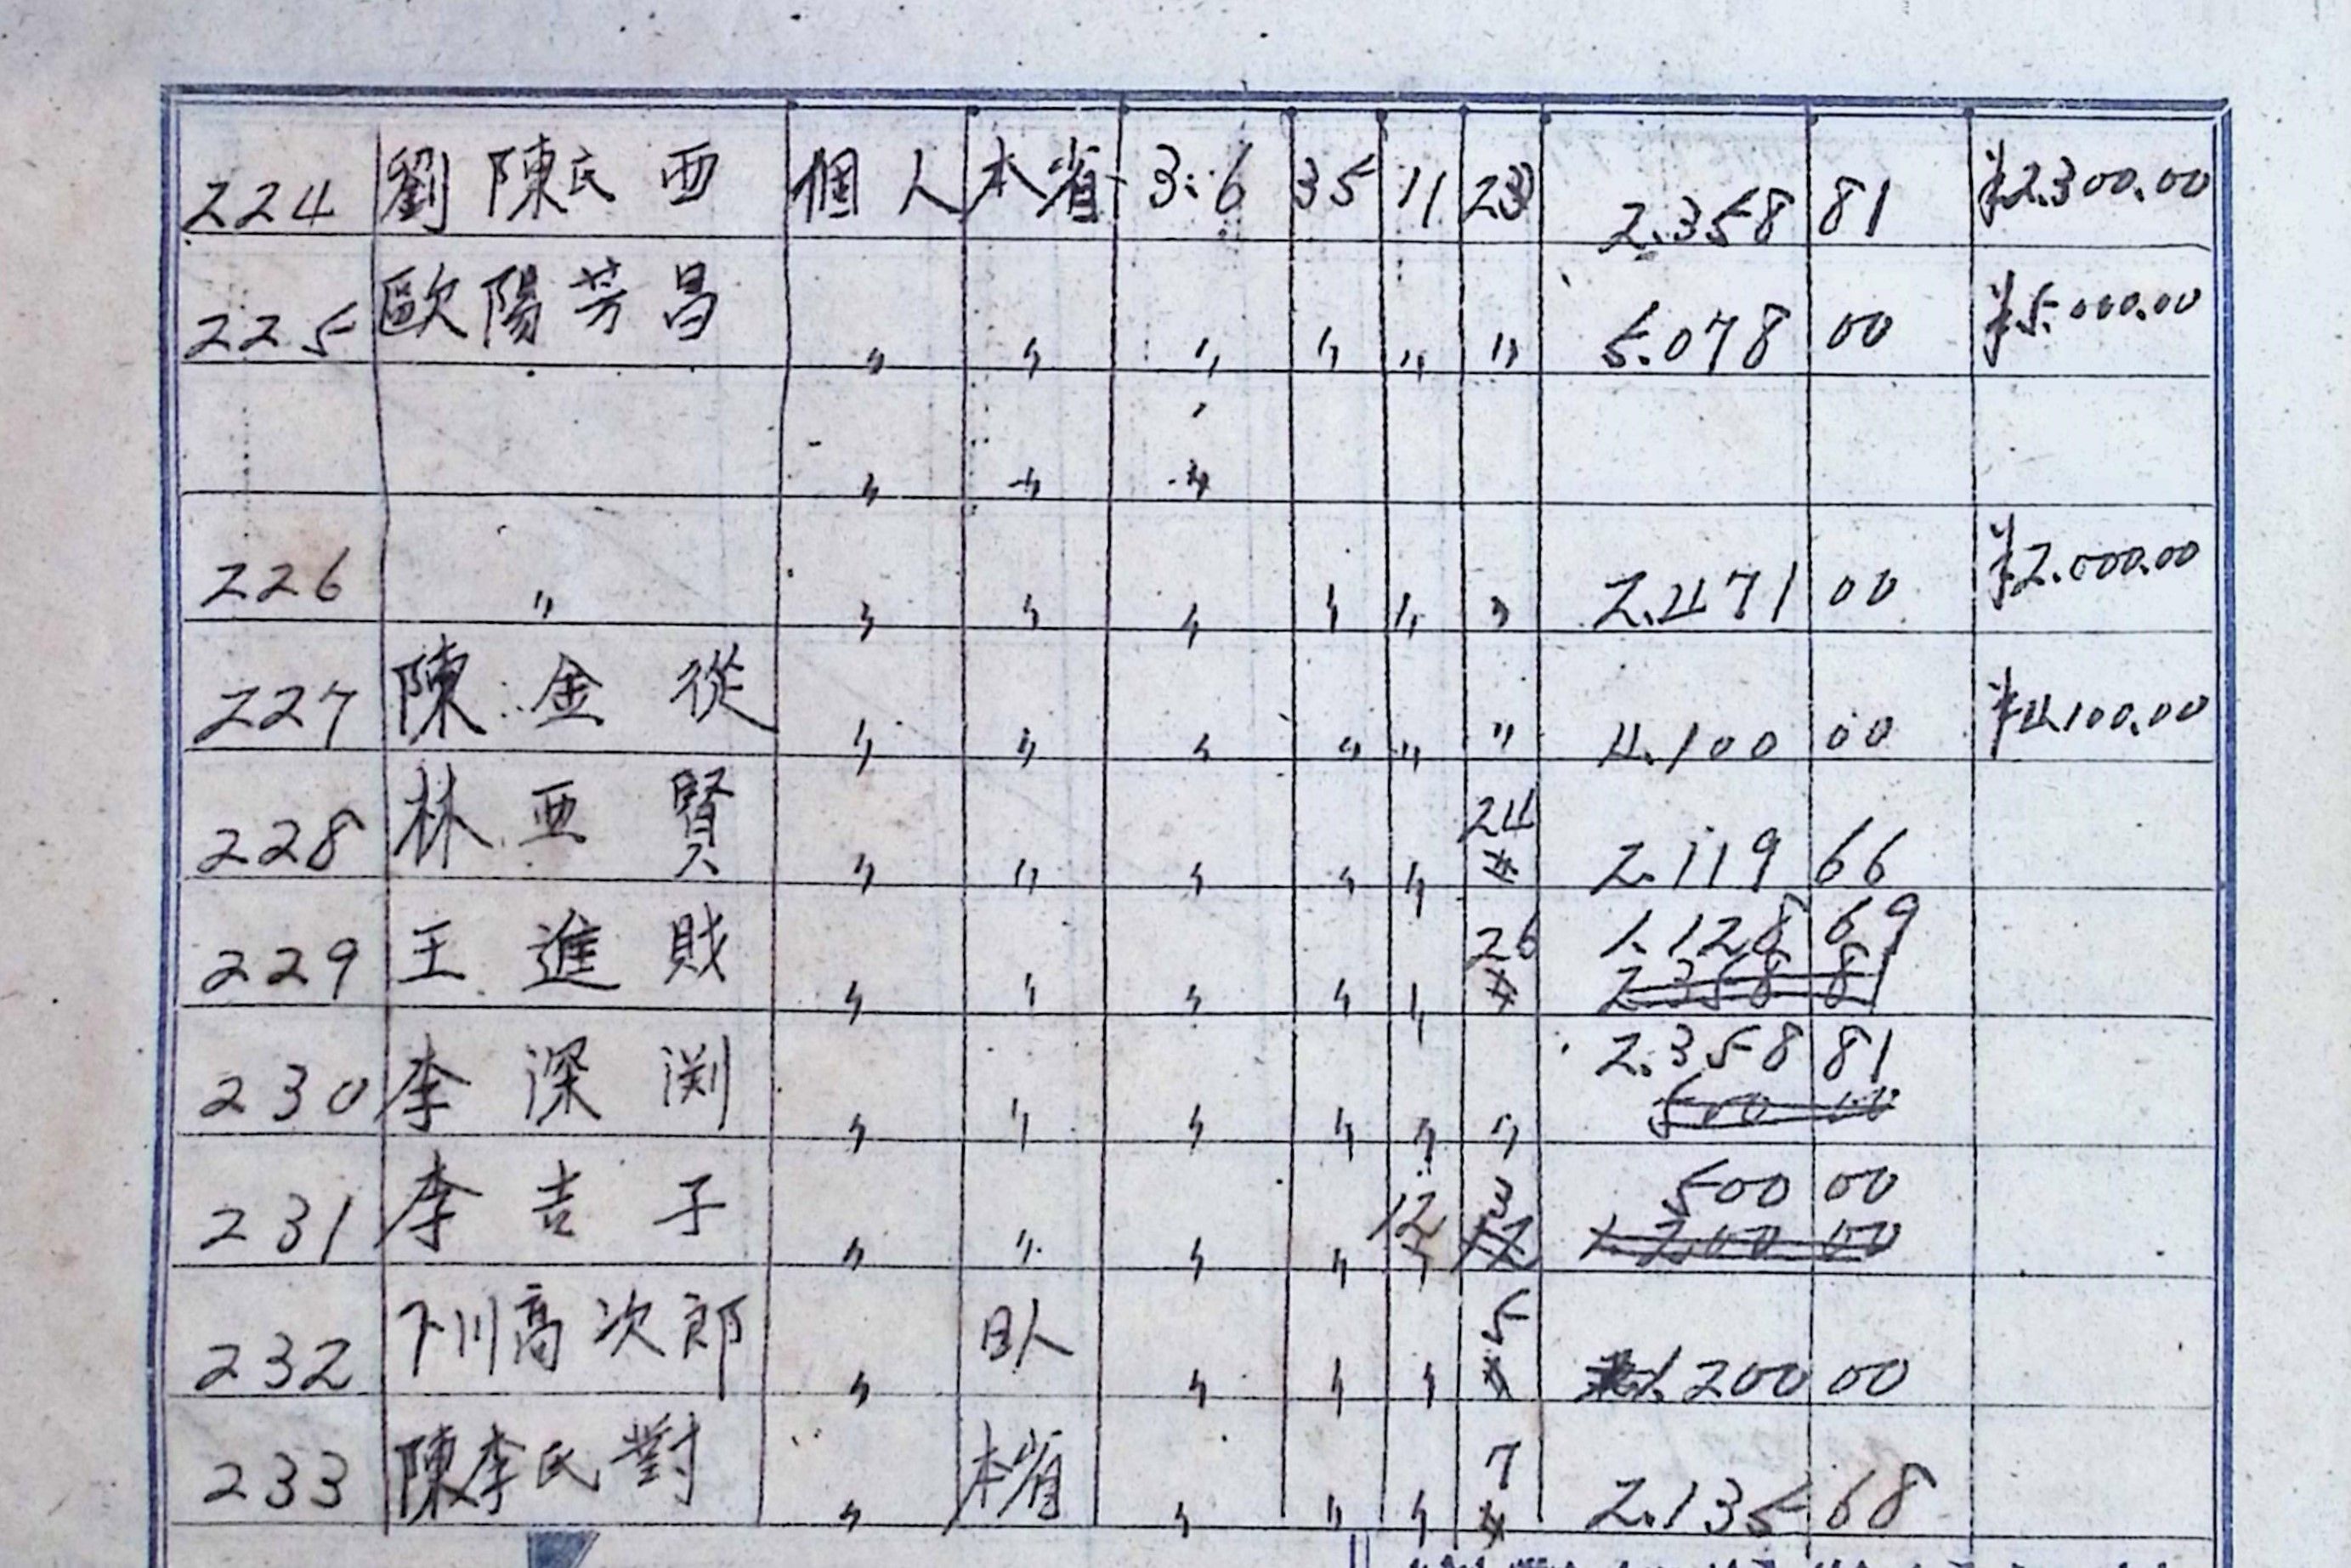 224 劉陳氏西 個人 本省 3.6 35 11 23 2.358 81 ¥2.300.00
225 歐陽芳昌 〃 〃 〃 〃 〃 〃 5.078 00 ¥5.000.00
〃 〃 〃
226 〃 〃 〃 〃 〃 〃 〃 2.471 00 ¥2.000.00
227 陳金從 〃 〃 〃 〃 〃 〃 4.100 00 ¥4.100.00
228 林亜賢 〃 〃 〃 〃 〃 24 2.119 66
229 王進財 〃 〃 〃 〃 〃 26 1.128 69
2.358 81
230 李深渕 〃 〃 〃 〃 〃 〃 2.358 81
500 00
231 李吉子 〃 〃 〃 〃 12 3 500 00
12 1.200 00
232 下川高次郎 〃 日人 〃 〃 〃 5 1.200 00
233 陳李氏對 〃 本省 〃 〃 〃 7 2.135 68